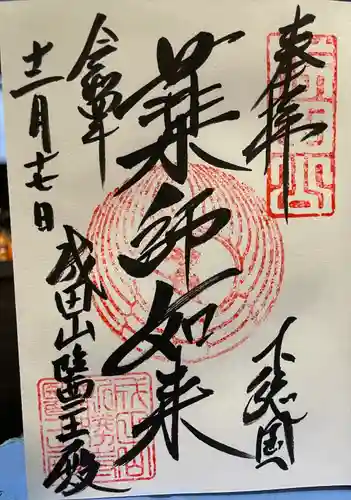 奉拝
下総国
薬師如来
令和年
十二月十七日
成田山醫王殿